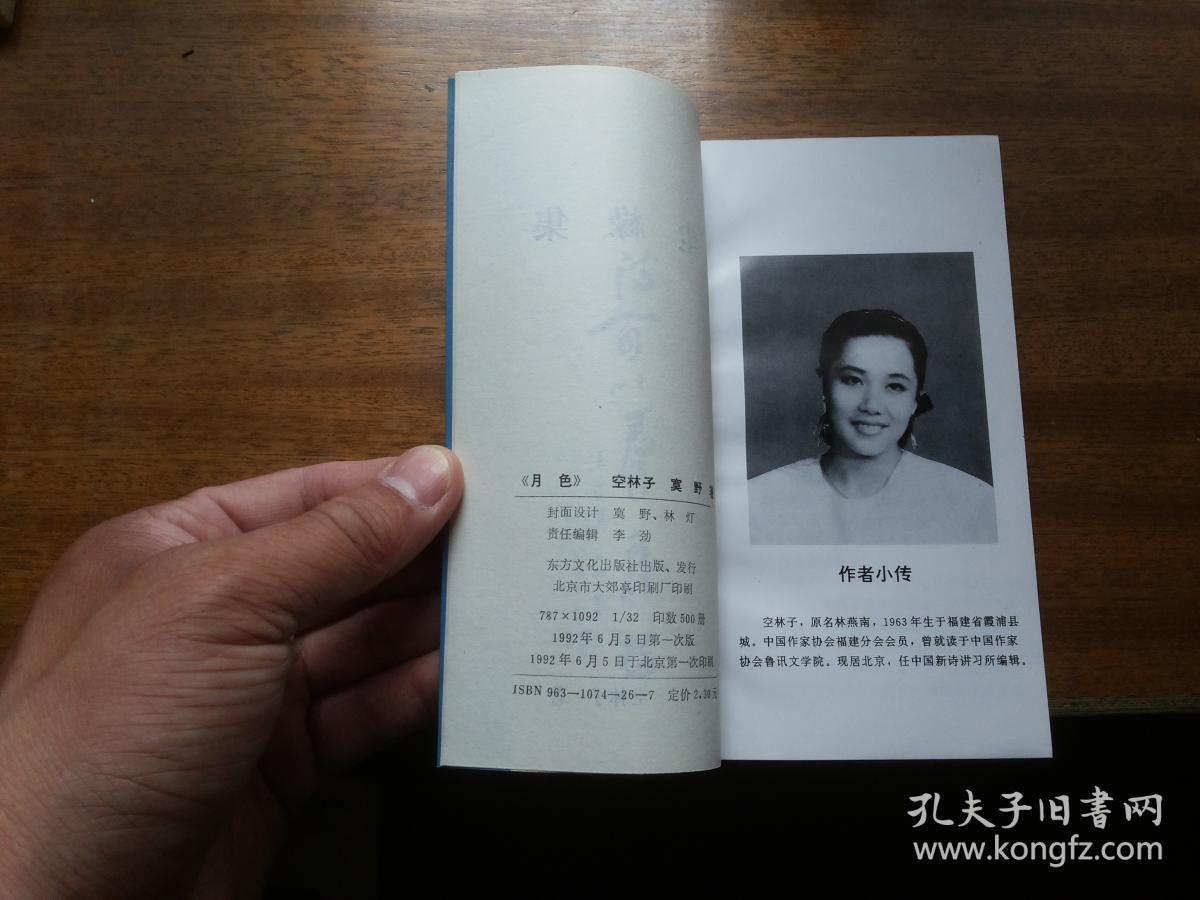 《月 色》 空林子 寞 野 著
封面设计 寞 野、林 灯
责任编辑 李 劲
东方文化出版社出版、发行
北京市大郊亭印刷厂印刷
787×1092 1/32 印数500册
1992年6月5日第一次版
1992年6月5日于北京第一次印刷
ISBN 963—1074—26—7 定价2.30元
作者小传
空林子，原名林燕南，1963年生于福建省霞浦县
城。中国作家协会福建分会会员，曾就读于中国作家
协会鲁讯文学院。现居北京，任中国新诗讲习所编辑。
孔夫子旧书网
www.kongfz.com